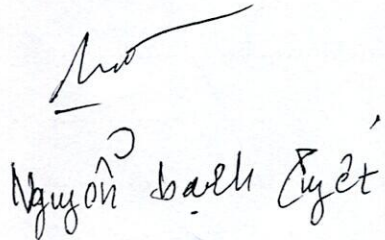 Nguyễn bạch Tuyết